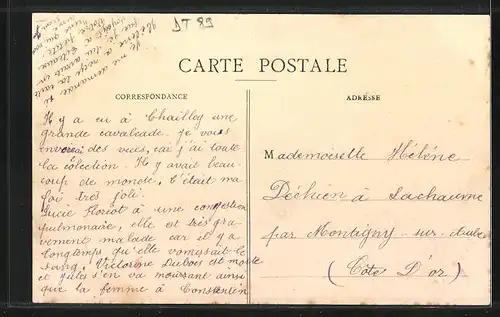 DT 89
CARTE POSTALE
CORRESPONDANCE
ADRESSE
Il y a eu à Chailley une
grande cavalcade. Je vous
enverai des vues, car j'ai toute
la colection. Il y avait beau-
coup de monde, c'était ma
foi très joli.
Lucie Floriot à une congestion
pulmonaire, elle est très gra-
vement malade car il y a
longtemps qu'elle vomissait le
sang, Victorine Dubois est morte
et Jules s'en va mourant ainsi
que la femme à Constantin
Mademoiselle Hélène
Déchien à Lachaume
par Montigny-sur-Aube
(Côte D'or)